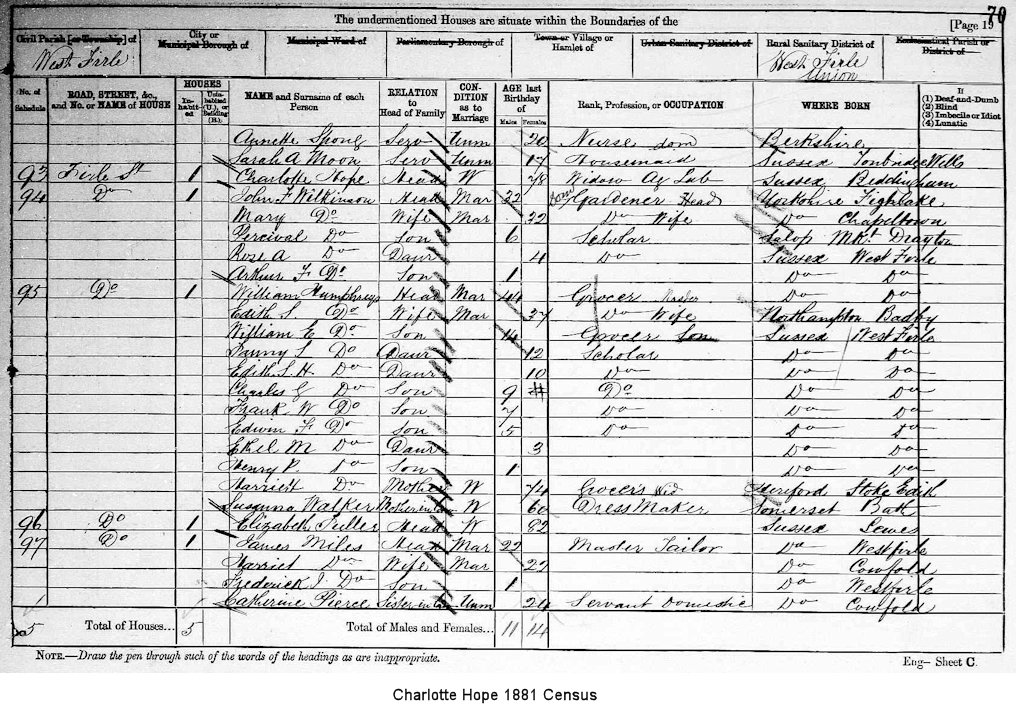 The undermentioned Houses are situate within the Boundaries of the
[Page 19
70
Civil Parish [or Township] of
City or Municipal Borough of
Municipal Ward of
Parliamentary Borough of
Town or Village or Hamlet of
Urban Sanitary District of
Rural Sanitary District of
Ecclesiastical Parish or District of
West Firle
West Firle Union
No. of Schedule
ROAD, STREET, &c., and No. or NAME of HOUSE
HOUSES
In-habit-ed
Unin-habited (U.), or Building (B.)
NAME and Surname of each Person
RELATION to Head of Family
CON-DITION as to Marriage
AGE last Birthday of
Males
Females
Rank, Profession, or OCCUPATION
WHERE BORN
If (1) Deaf-and-Dumb (2) Blind (3) Imbecile or Idiot (4) Lunatic
Annette Spong Serv Unm 20 Nurse dom Berkshire
Sarah A Moon Serv Unm 17 Housemaid Sussex Tonbridge Wells
93 Firle St 1 Charlotte Hope Head W 78 Widow Ag Lab Sussex Beddingham
94 Do 1 John F Wilkinson Head Mar 32 Gardener Head Yorkshire
Mary Do Wife Mar 32 Do Wife Do Chapeltown
Percival Do Son 6 Scholar Salop Mkt Drayton
Rose A Do Daur 4 Do Sussex West Firle
Arthur F Do Son 1 Do Do
95 Do 1 William Humphreys Head Mar 44 Grocer Master Do Do
Edith S. Do Wife Mar 37 Do Wife Northampton Badby
William E Do Son 14 Grocer Son Sussex West Firle
Fanny S Do Daur 12 Scholar Do Do
Edith S. H Do Daur 10 Do Do Do
Charles G Do Son 9 Do Do Do
Frank W Do Son 7 Do Do Do
Edwin F Do Son 5 Do Do Do
Ethel M Do Daur 3 Do Do
Henry P. Do Son 1 Do Do
Harriett Do Mother W 74 Grocers Wid Hereford Stoke Edith
Susanna Walker Mother in law W 60 Dress Maker Somerset Bath
96 Do 1 Elizabeth Fuller Head W 82 Sussex Lewes
97 Do 1 James Miles Head Mar 22 Master Tailor Do Westfirle
Harriet Do Wife Mar 27 Do Cowfold
Frederick J Do Son 1 Do Westfirle
Catherine Pierce Sister in law Unm 24 Servant Domestic Do Cowfold
5 Total of Houses... 5 Total of Males and Females... 11 14
NOTE.—Draw the pen through such of the words of the headings as are inappropriate.
Eng— Sheet C.
Charlotte Hope 1881 Census